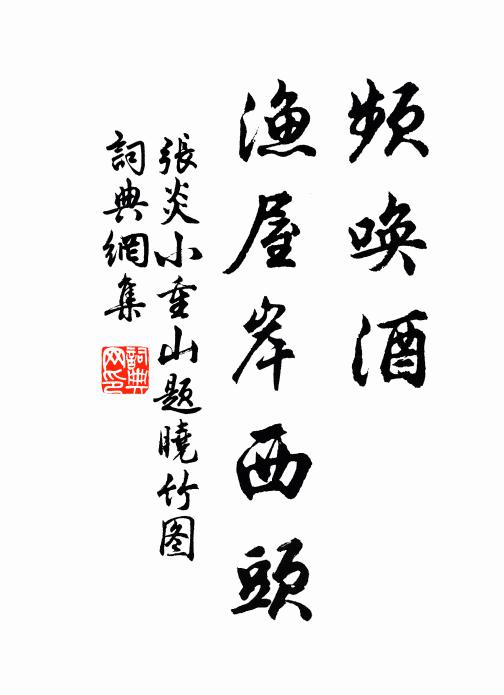 頻喚酒
漁屋岸西頭
張炎小重山題曉竹图
詞典網集
詞典网印